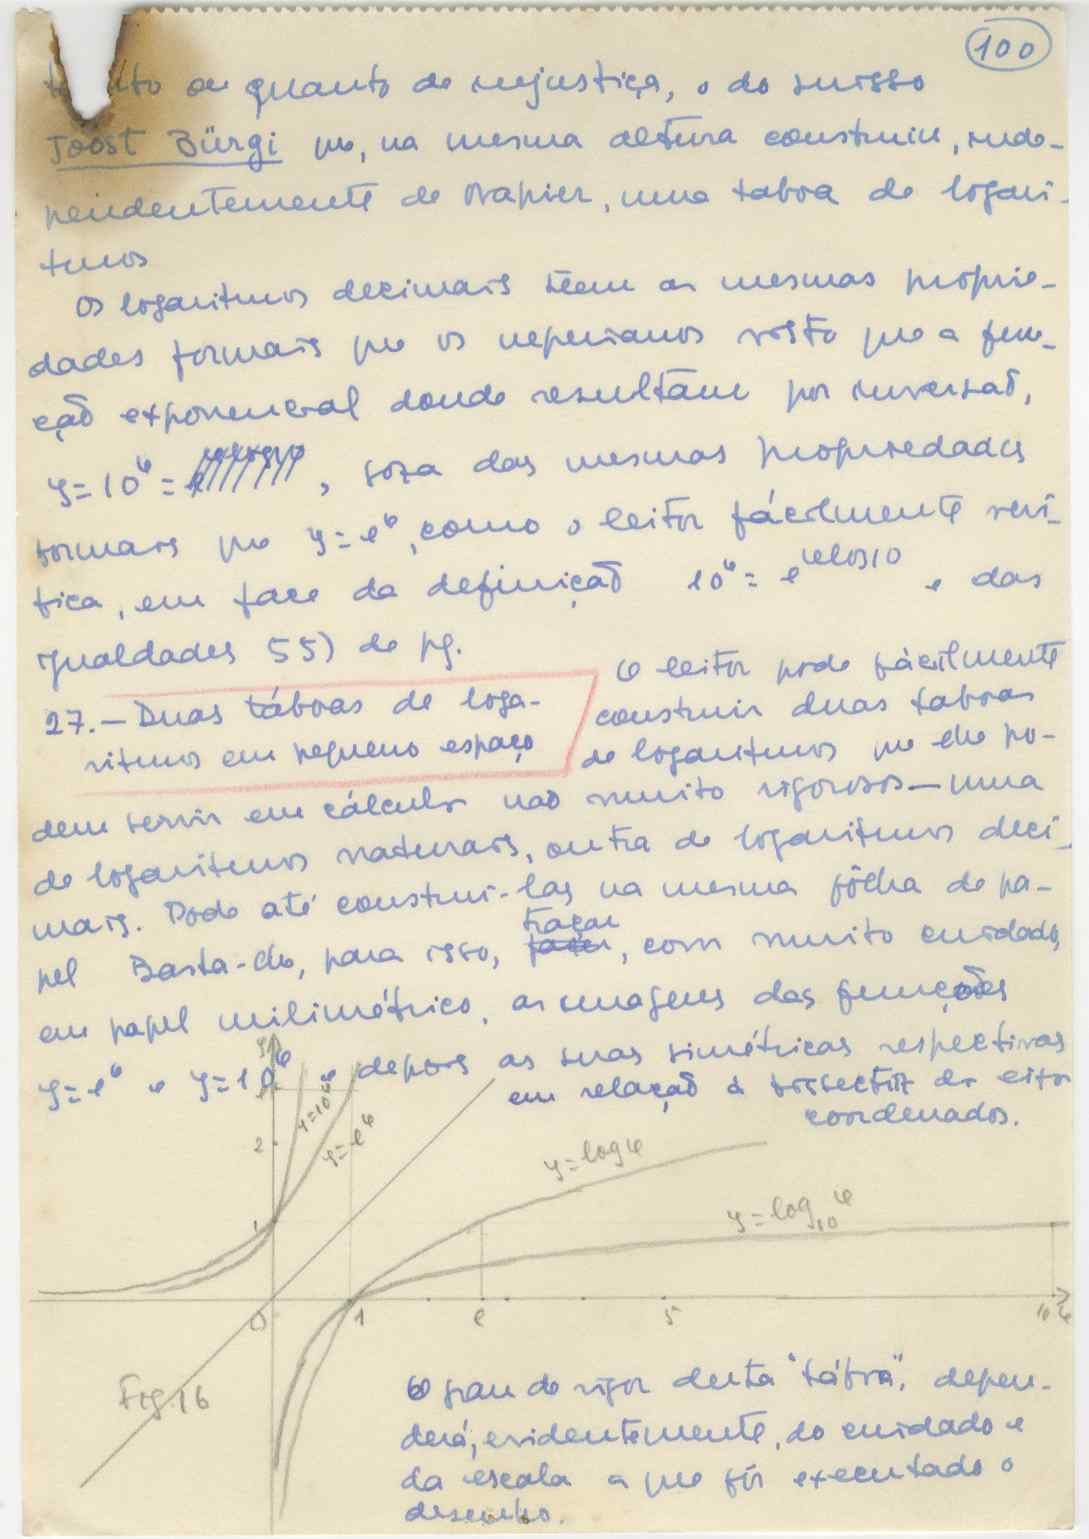 100
ou quanto de injustiça, o do suisso
Joost Bürgi que, na mesma altura construiu, inde-
pendentemente de Napier, uma taboa de logari-
tmos
Os logaritmos decimais têem as mesmas proprie-
dades formais que os neperianos visto que a fun-
ção exponencial donde resultam por inversão,
y=10^x = e , goza das mesmas propriedades
formais que y=e^x, como o leitor fácilmente veri-
fica, em face da definição 10^x = e^{x log 10} e das
igualdades 55) de pg.
27.— Duas táboas de loga-
ritmos em pequeno espaço
O leitor pode fácilmente
construir duas taboas
de logaritmos que lhe po-
dem servir em cálculos não muito rigorosos — uma
de logaritmos naturais, outra de logaritmos deci-
mais. Pode até construí-las na mesma fôlha de pa-
pel Basta-lhe, para isso, traçar, com muito cuidado,
em papel milimétrico, as imagens das funções
y=e^x e y=10^x e depois as suas simétricas respectivas
em relação à bissectriz dos eixos
coordenados.
y
y=10^x
y=e^x
2
1
y=log x
y=log₁₀ x
O 1 e 5 10 x
Fig 16
O grau de rigor desta "tábua", depen-
derá, evidentemente, do cuidado e
da escala a que fôr executado o
desenho.